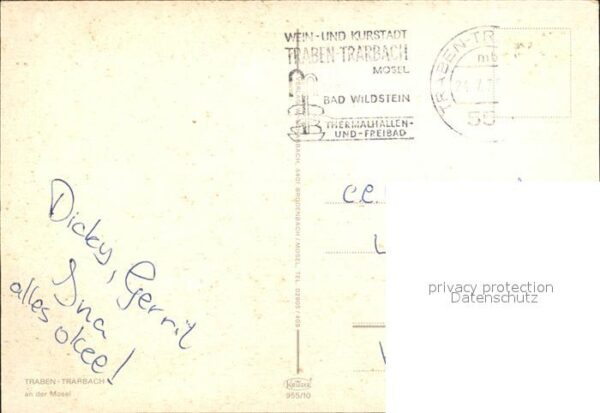 WEIN-UND KURSTADT
TRABEN-TRARBACH
MOSEL
BAD WILDSTEIN
THERMALHALLEN-
UND-FREIBAD
TRABEN-TR
mb
24.7.
55
5401 BRODENBACH / MOSEL, TEL. 02605/405
Dicky, Gerrit
Ina
alles okee!
privacy protection
Datenschutz
TRABEN-TRARBACH
an der Mosel
Krüger
955/10